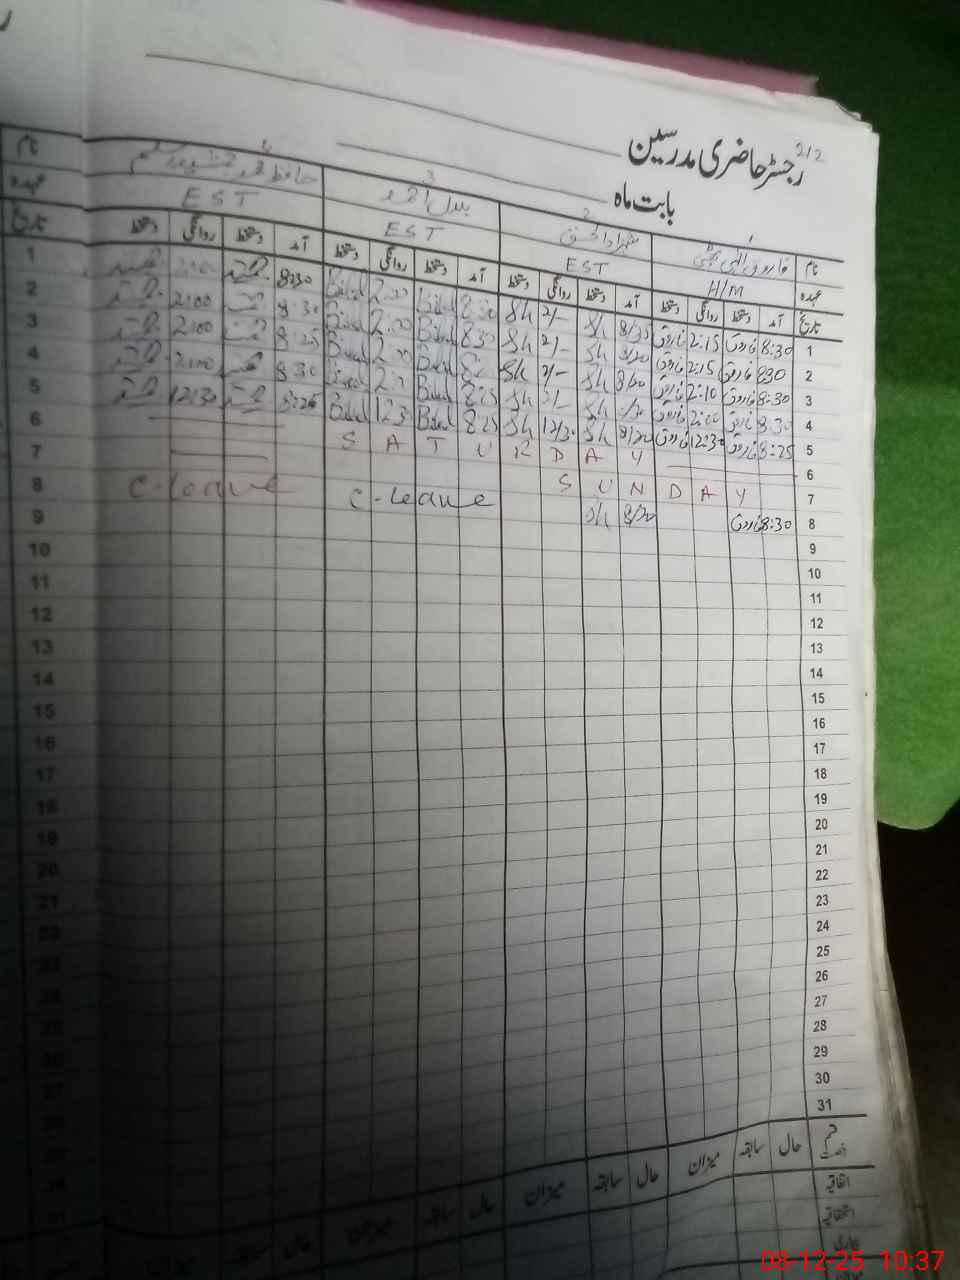 212
رجسٹر حاضری مدرسین
بابت ماہ
1 2 3 4
نام فاروق الٰہی بھٹی شہزاد الحسن بلال احمد حافظ محمد نام
عہدہ H/M EST EST EST عہدہ
تاریخ آمد دستخط روانگی دستخط آمد دستخط روانگی دستخط آمد دستخط روانگی دستخط آمد دستخط روانگی دستخط تاریخ
1 8:30 فاروق 2:15 فاروق 8/20 Sh 2/- Sh 8:30 Bilal 2:00 Bilal 8:30 1
2 8:30 فاروق 2:15 فاروق 8/20 Sh 2/- Sh 8:30 Bilal 2:00 Bilal 8:30 2:00 2
3 8:30 فاروق 2:10 فاروق 8/20 Sh 2/- Sh Bilal 2:00 Bilal 8:25 2:00 3
4 8:30 فاروق 2:00 فاروق Sh 2/- Sh 8:25 Bilal Bilal 8:30 2:00 4
5 8:25 فاروق 12:30 فاروق 8/20 Sh 12/30 Sh 8:25 Bilal 12:30 Bilal 8:25 12:30 5
6 SATURDAY 6
7 SUNDAY 7
8 8:30 فاروق 8/20 Sh C-leave C-leave 8
9 9
10 10
11 11
12 12
13 13
14 14
15 15
16 16
17 17
18 18
19 19
20 20
21 21
22 22
23 23
24
25
26
27
28
29
30
31
قسم رخصت حال سابقہ میزان حال سابقہ میزان حال سابقہ میزان حال سابقہ میزان
اتفاقیہ
استحقاقیہ
بیماری
08-12-25 10:37